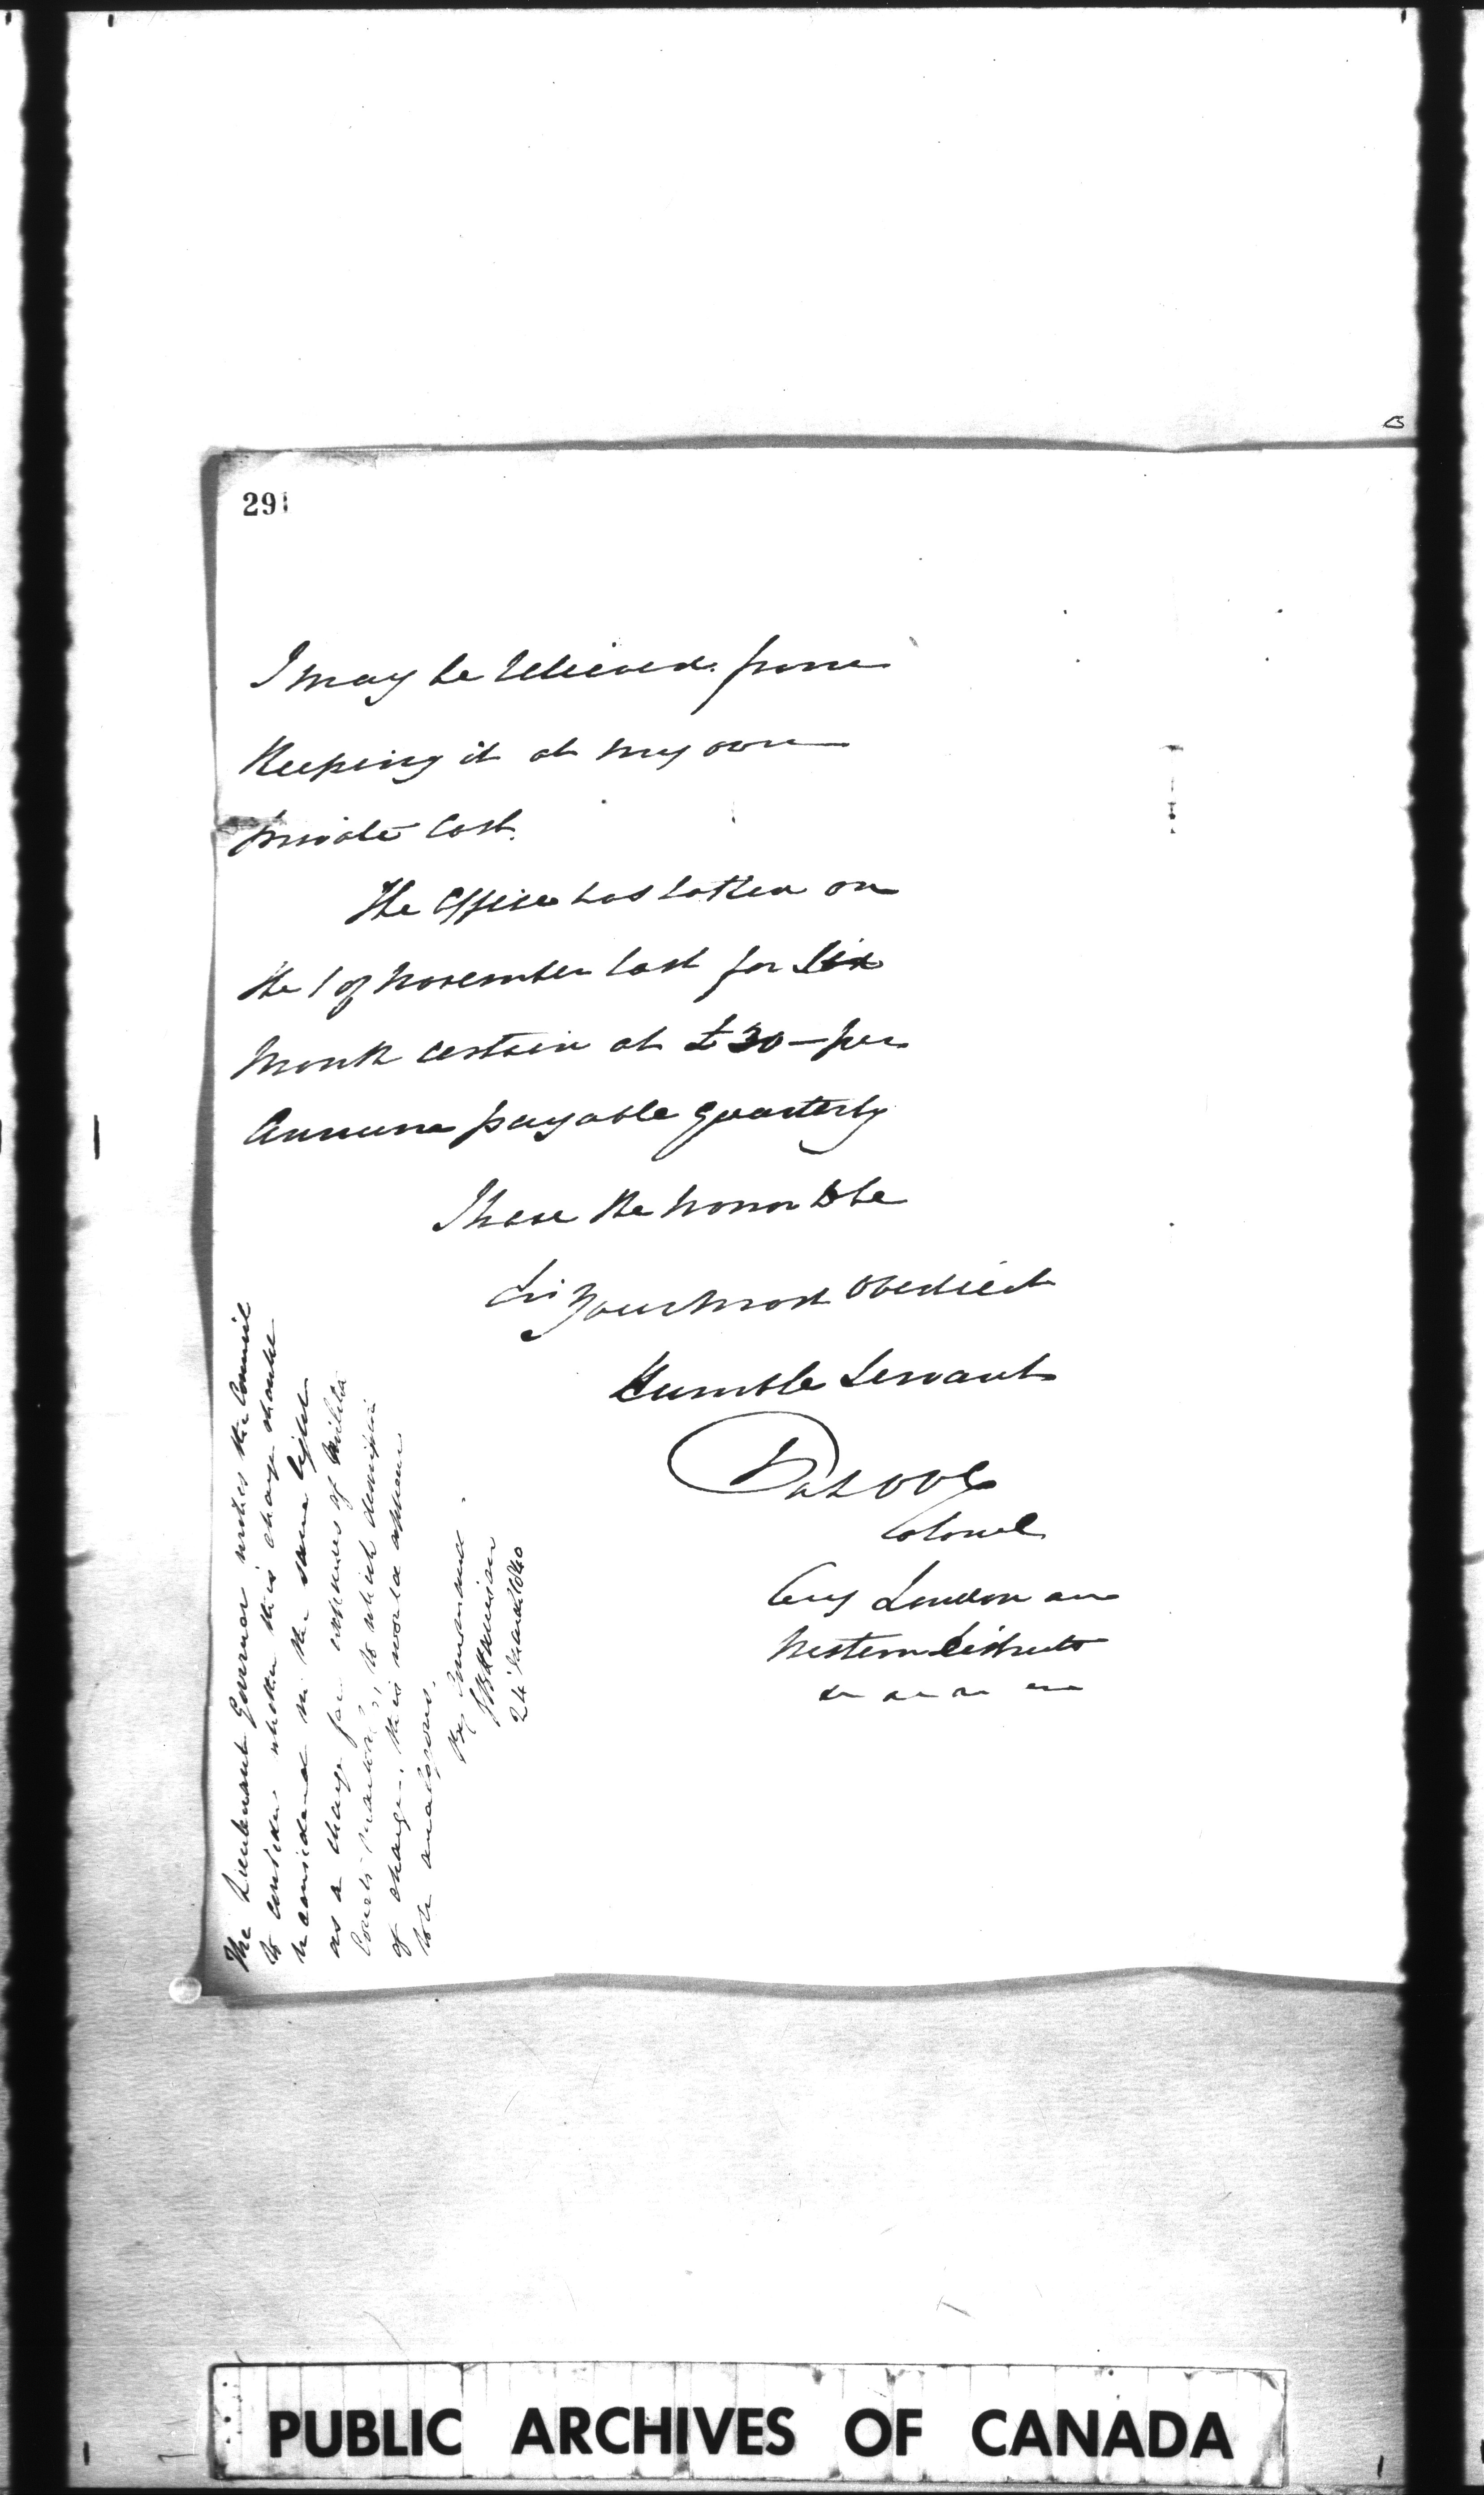 291
I may be relieved from
Keeping it at my own
private Cost.
The Office was taken on
the 1 of November last for Six
Month certain at £30 - per
Annum payable quarterly
I have the honor to be
Sir Your most obedient
Humble Servant
Colonel
Comg London and
Western Districts
The Lieutenant Governor wishes the Council
to consider whether this charge should
be considered in the same light
as a charge for expenses of Militia
Courts martial, to which description
of charge, this would appear
to be analogous.
By Command
24 March 1840
PUBLIC ARCHIVES OF CANADA